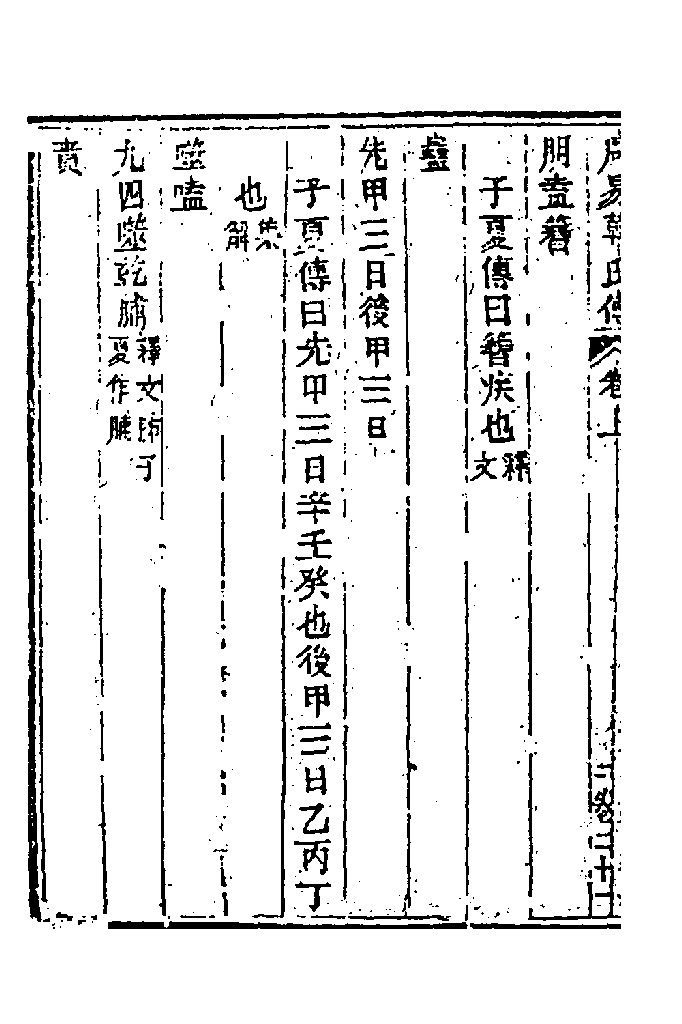 周易韓氏傳 卷上
朋盍簪
子夏傳曰簪疾也釋文
蠱
先甲三日後甲三日
子夏傳曰先甲三日辛壬癸也後甲三日乙丙丁
也集解
噬嗑
九四噬乾胏釋文胏子夏作脯
賁